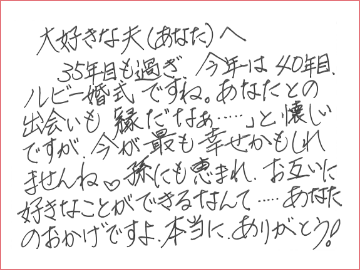 大好きな夫(あなた)へ
35年目も過ぎ、今年は40年目、
ルビー婚式ですね。あなたとの
出会いも「縁だなぁ……」と懐しい
ですが、今が最も幸せかもしれ
ませんね♡孫にも恵まれ、お互いに
好きなことができるなんて……あなた
のおかげですよ。本当に、ありがとう!